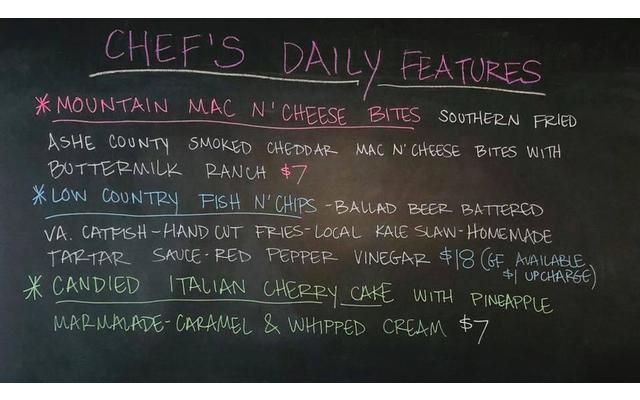 CHEF'S DAILY FEATURES
* MOUNTAIN MAC N' CHEESE BITES SOUTHERN FRIED
ASHE COUNTY SMOKED CHEDDAR MAC N' CHEESE BITES WITH
BUTTERMILK RANCH $7
* LOW COUNTRY FISH N' CHIPS - BALLAD BEER BATTERED
VA. CATFISH - HAND CUT FRIES - LOCAL KALE SLAW - HOMEMADE
TARTAR SAUCE - RED PEPPER VINEGAR $18 (GF AVAILABLE
$1 UPCHARGE)
* CANDIED ITALIAN CHERRY CAKE WITH PINEAPPLE
MARMALADE - CARAMEL & WHIPPED CREAM $7